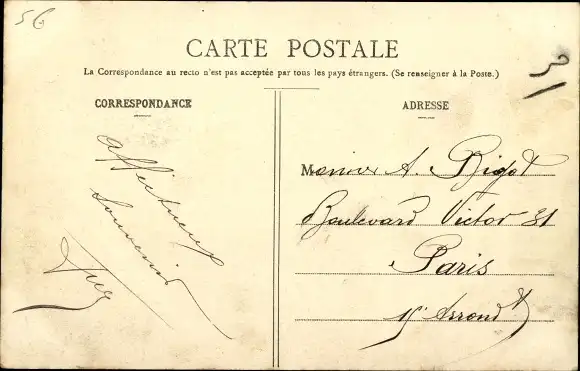 56
CARTE POSTALE
La Correspondance au recto n'est pas acceptée par tous les pays étrangers. (Se renseigner à la Poste.)
CORRESPONDANCE
affectueux
souvenir
ADRESSE
Monsieur A. Rigot
Boulevard Victor 81
Paris
15e Arrondt